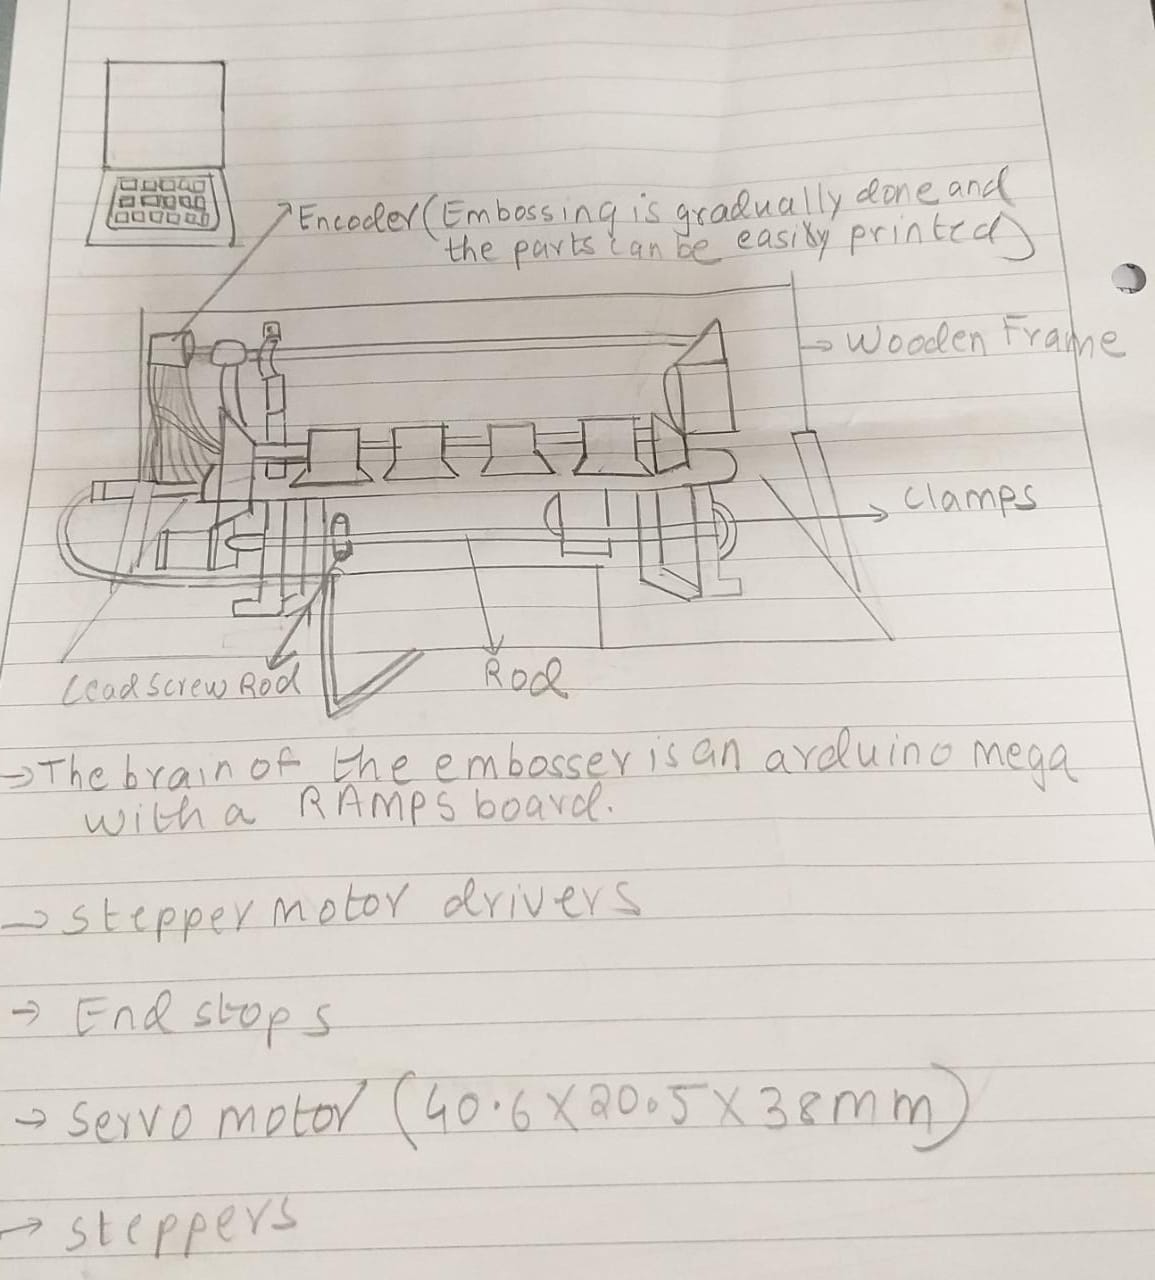 Encoder (Embossing is gradually done and
the parts can be easily printed)
Wooden Frame
Clamps
Lead Screw Rod
Rod
→ The brain of the embosser is an arduino mega
with a RAMPS board.
→ stepper motor drivers
→ End stops
→ Servo motor (40.6 X 20.5 X 38mm)
→ steppers